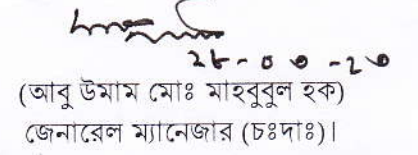 ২৮-০৩-২৩
(আবু উমাম মোঃ মাহবুবুল হক)
জেনারেল ম্যানেজার (চঃদাঃ)।